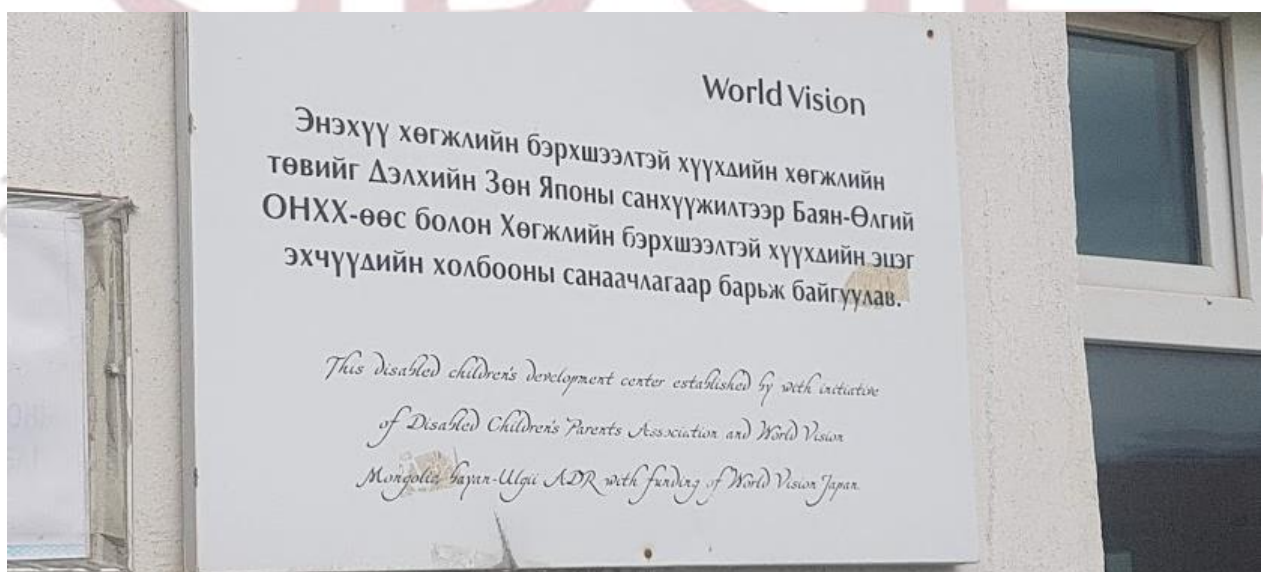 World Vision
Энэхүү хөгжлийн бэрхшээлтэй хүүхдийн хөгжлийн
төвийг Дэлхийн Зөн Японы санхүүжилтээр Баян-Өлгий
ОНХХ-өөс болон Хөгжлийн бэрхшээлтэй хүүхдийн эцэг
эхчүүдийн холбооны санаачлагаар барьж байгуулав.
This disabled children's development center established by with initiative
of Disabled Children's Parents Association and World Vision
Mongolia, bayan-Ulgii ADR with funding of World Vision Japan.